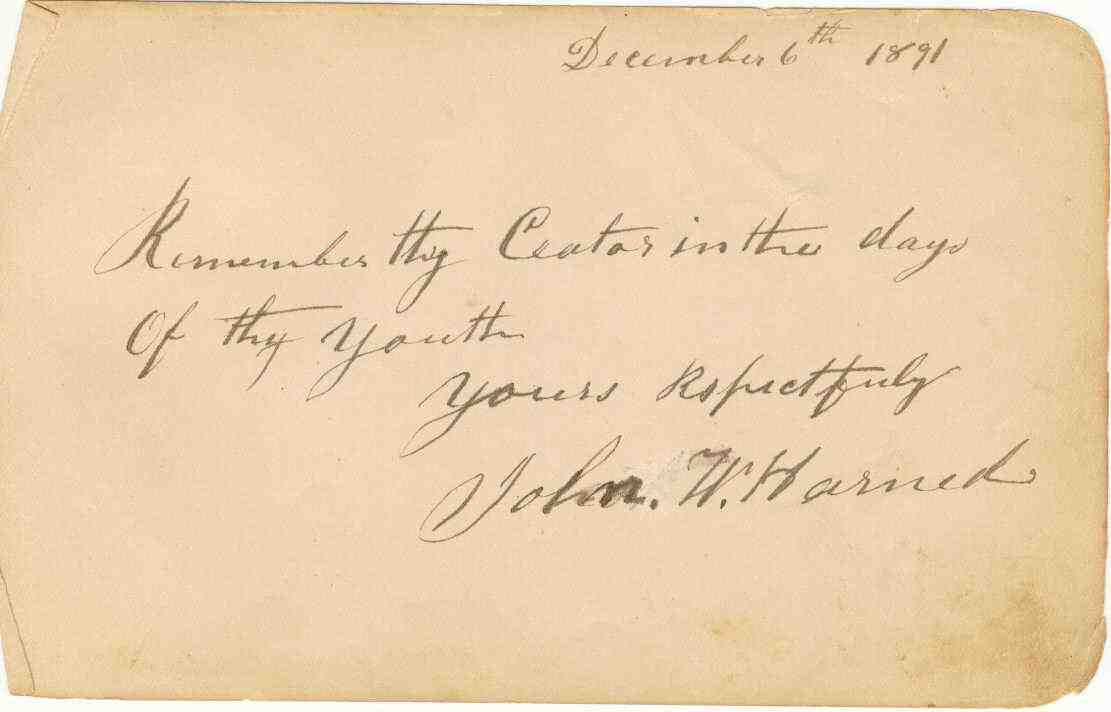 December 6th 1891
Remember thy Ceator in the days
Of thy Youth
Yours Rspectfuly
John. W. Harned